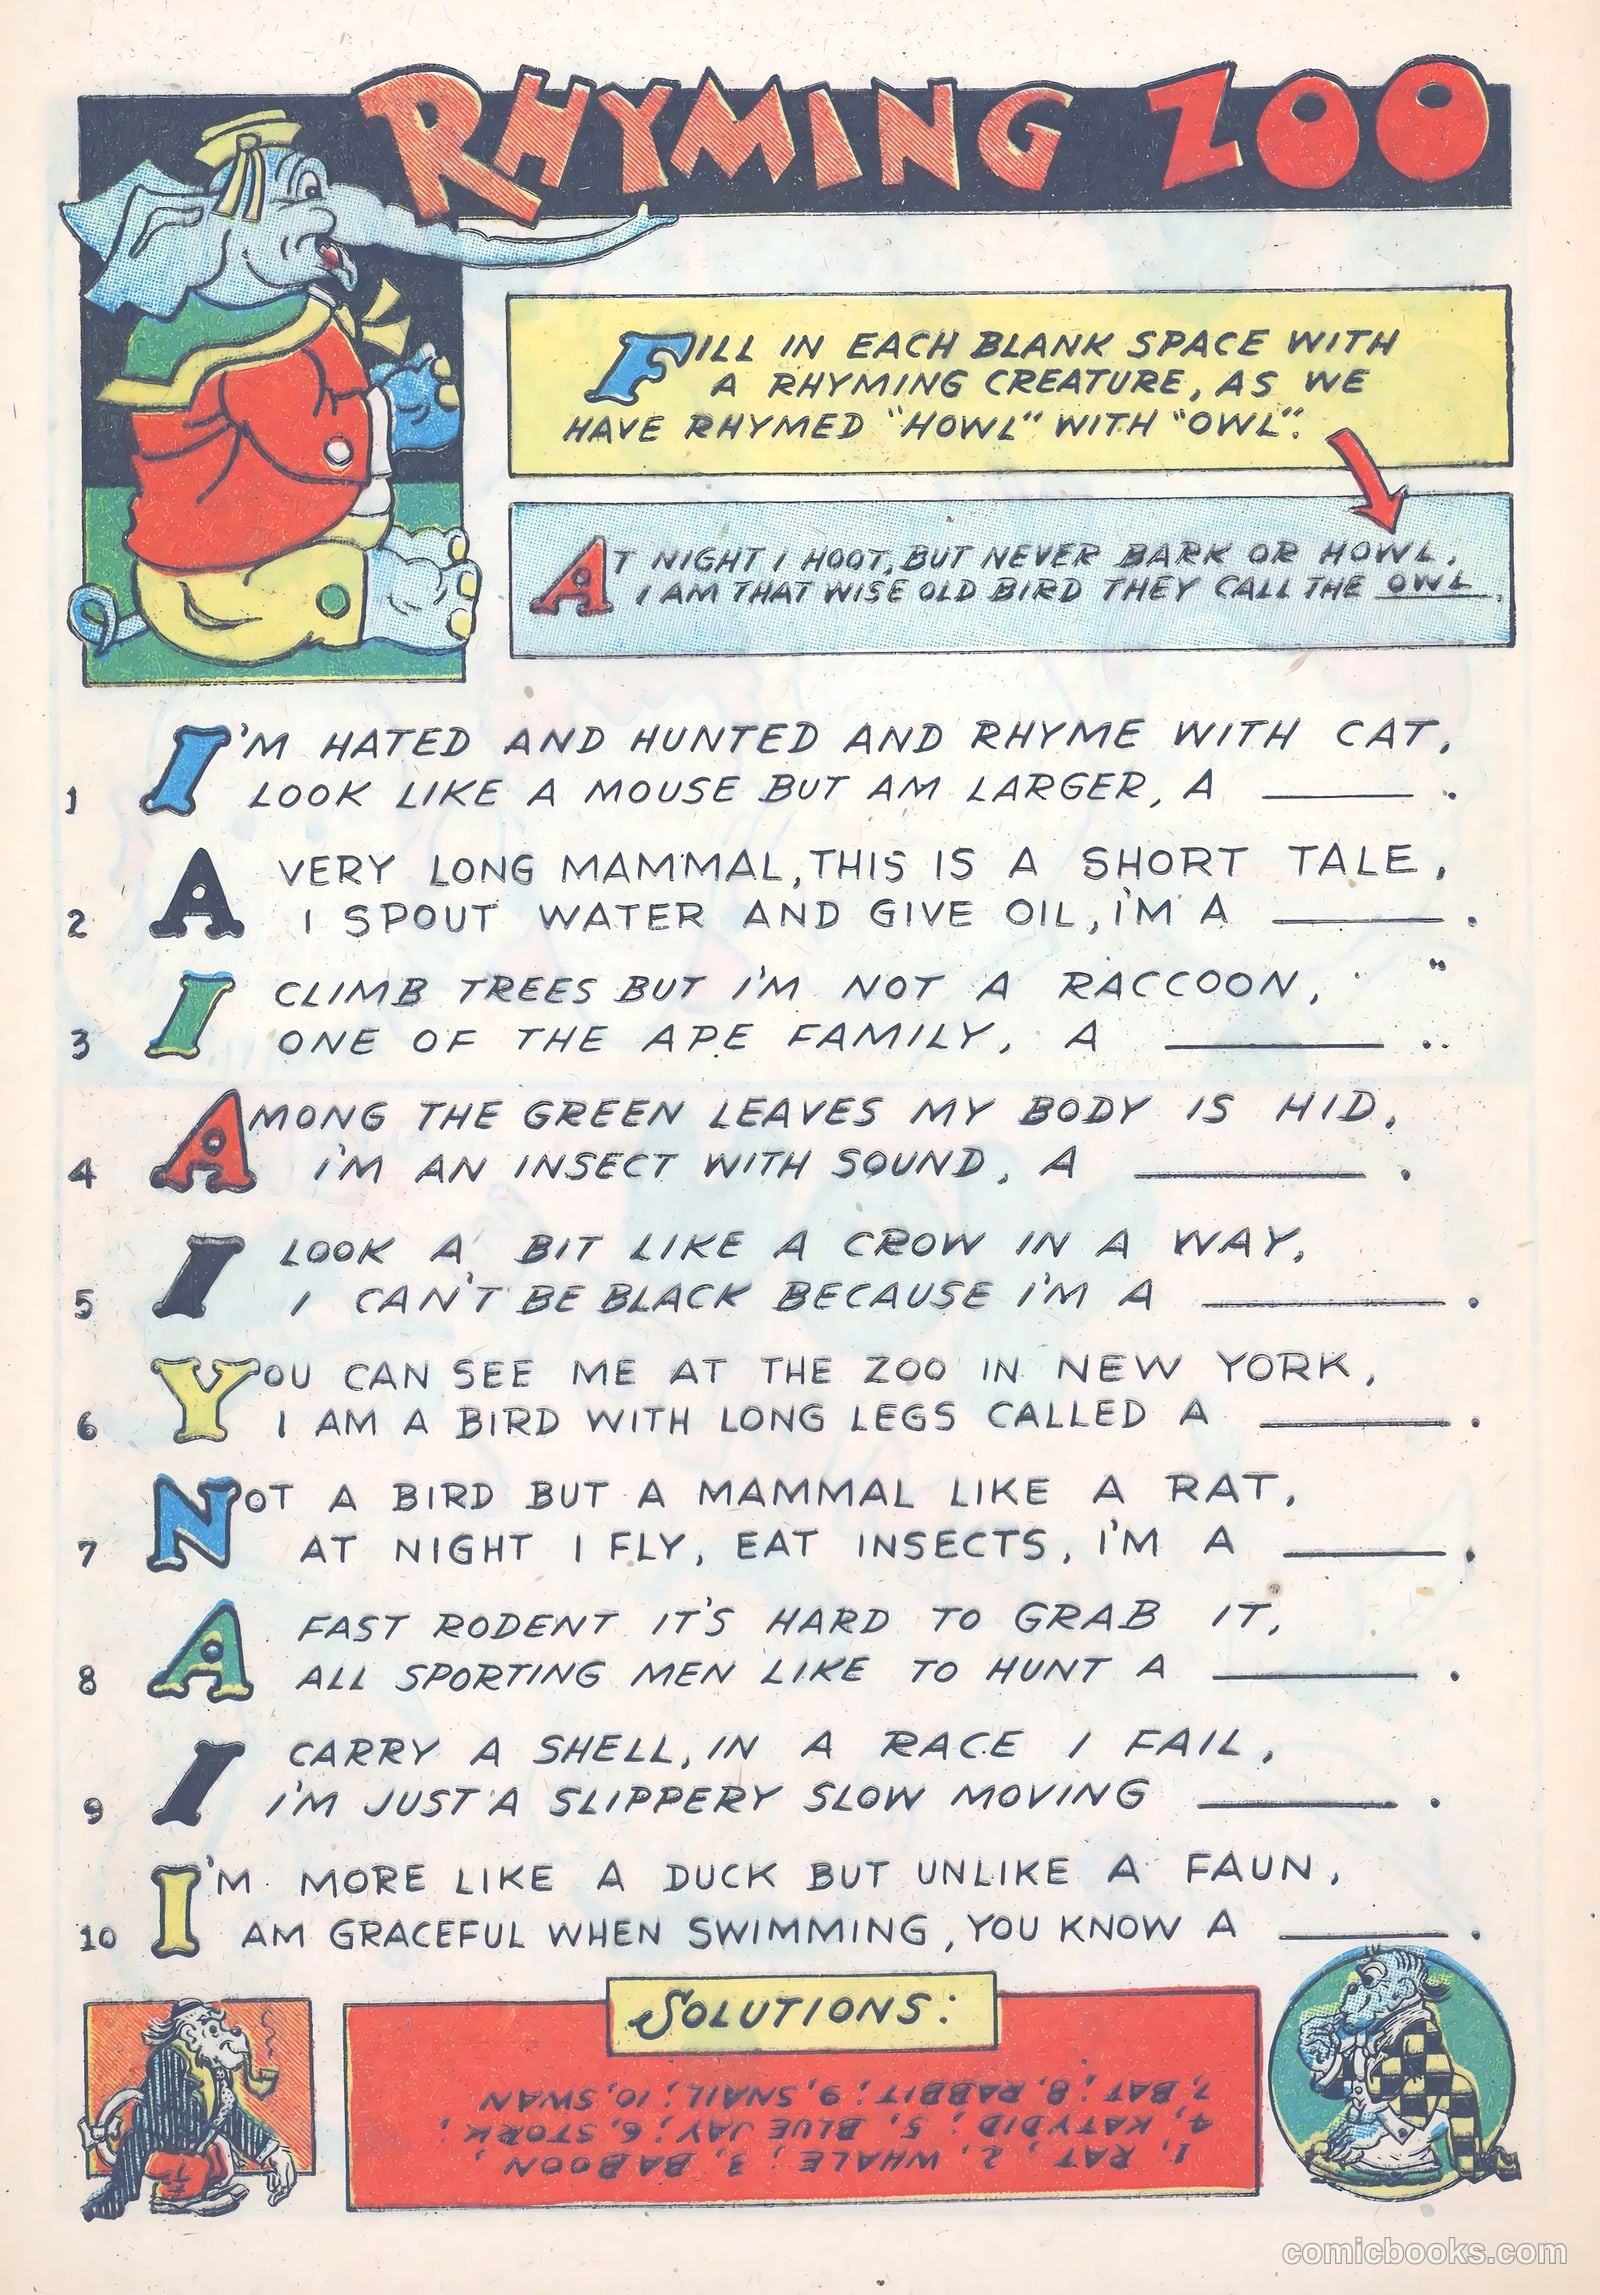 RHYMING ZOO
FILL IN EACH BLANK SPACE WITH
A RHYMING CREATURE, AS WE
HAVE RHYMED "HOWL" WITH "OWL".
AT NIGHT I HOOT, BUT NEVER BARK OR HOWL,
I AM THAT WISE OLD BIRD THEY CALL THE OWL.
I'M HATED AND HUNTED AND RHYME WITH CAT,
1 LOOK LIKE A MOUSE BUT AM LARGER, A ____.
A VERY LONG MAMMAL, THIS IS A SHORT TALE,
2 I SPOUT WATER AND GIVE OIL, I'M A ____.
I CLIMB TREES BUT I'M NOT A RACCOON,
3 ONE OF THE APE FAMILY, A ____.
AMONG THE GREEN LEAVES MY BODY IS HID,
4 I'M AN INSECT WITH SOUND, A ____.
I LOOK A BIT LIKE A CROW IN A WAY,
5 I CAN'T BE BLACK BECAUSE I'M A ____.
YOU CAN SEE ME AT THE ZOO IN NEW YORK,
6 I AM A BIRD WITH LONG LEGS CALLED A ____.
NOT A BIRD BUT A MAMMAL LIKE A RAT,
7 AT NIGHT I FLY, EAT INSECTS, I'M A ____.
A FAST RODENT IT'S HARD TO GRAB IT,
8 ALL SPORTING MEN LIKE TO HUNT A ____.
I CARRY A SHELL, IN A RACE I FAIL,
9 I'M JUST A SLIPPERY SLOW MOVING ____.
I'M MORE LIKE A DUCK BUT UNLIKE A FAUN,
10 AM GRACEFUL WHEN SWIMMING, YOU KNOW A ____.
SOLUTIONS:
1, RAT; 2, WHALE; 3, BABOON;
4, KATYDID; 5, BLUE JAY; 6, STORK;
7, BAT; 8, RABBIT; 9, SNAIL; 10, SWAN
comicbooks.com